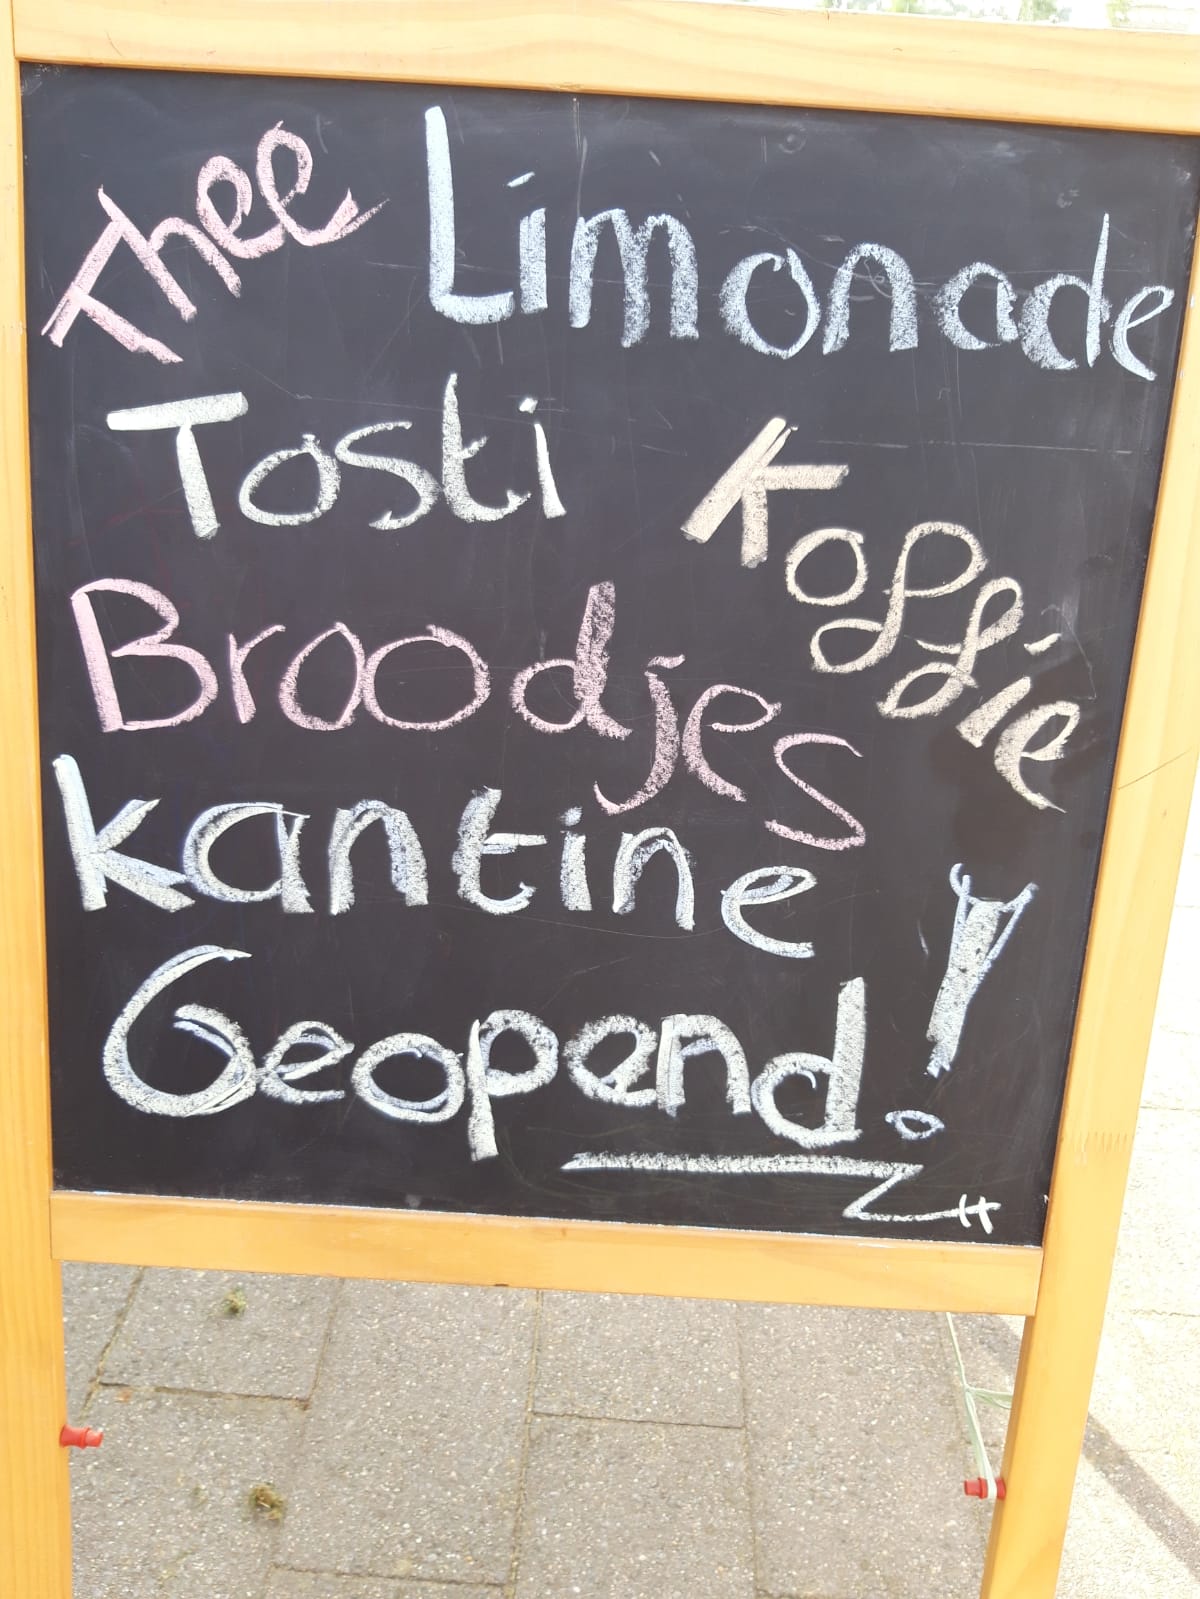 Thee Limonade
Tosti Koffie
Broodjes
kantine
Geopend!